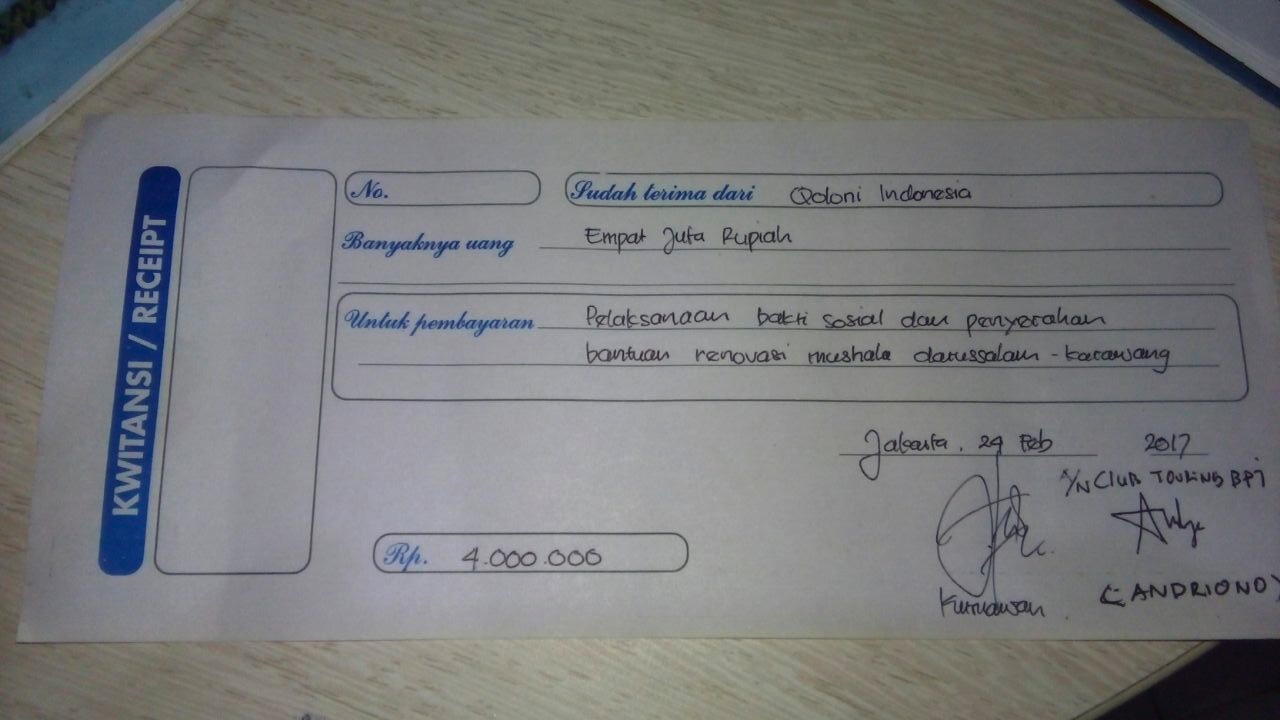 KWITANSI / RECEIPT
No.
Sudah terima dari Qoloni Indonesia
Banyaknya uang Empat Juta Rupiah
Untuk pembayaran Pelaksanaan bakti sosial dan penyerahan
bantuan renovasi mushala darussalam - karawang
Jakarta, 24 Feb 2017
A/N CLUB TOURING BPJ
Rp. 4.000.000
Kurniawan
(ANDRIONO)